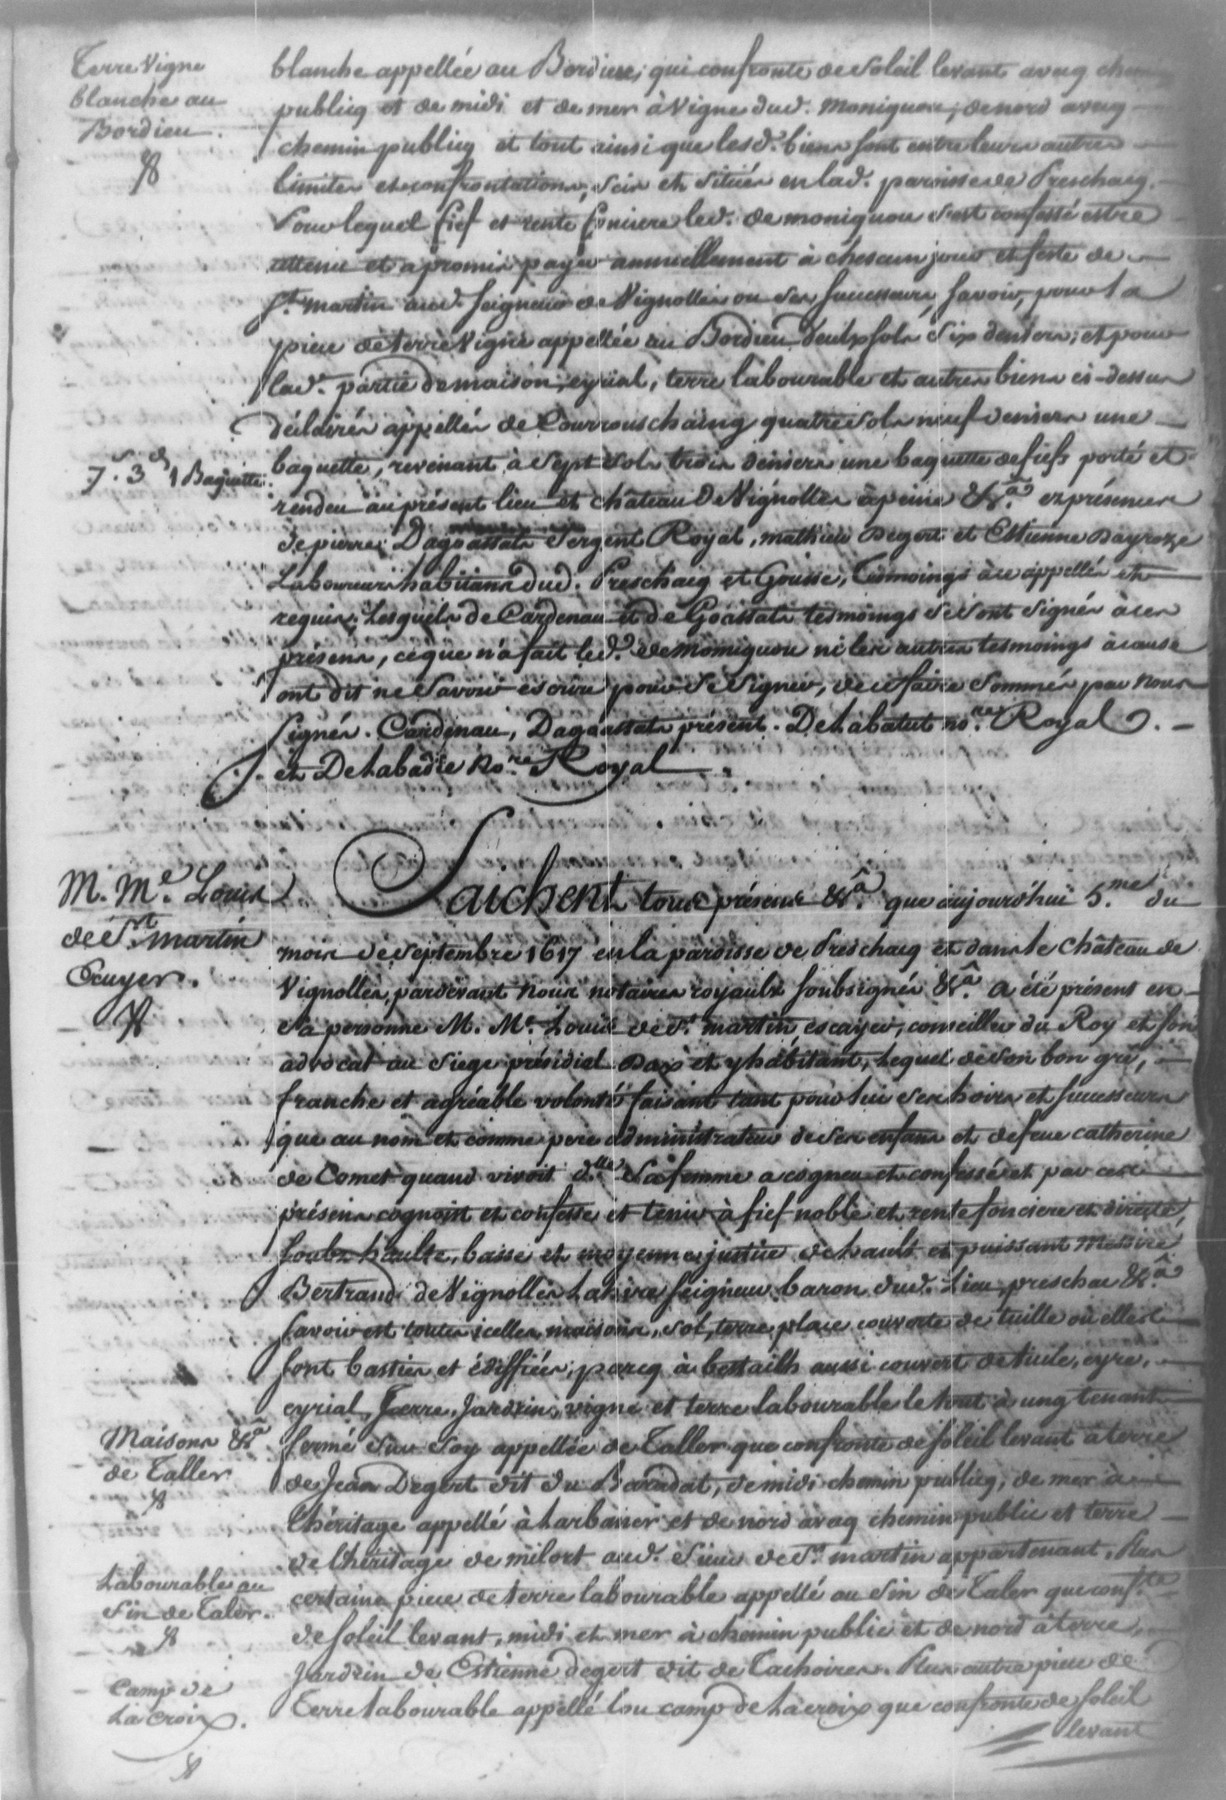 Terre Vigne
blanche au
Bordieu.
blanche appellée au Bordieu, qui confronte de soleil levant avecq chemin
publicq et de midi et de mer à vigne dud. moniquou, de nord avecq
chemin publicq et tout ainsi que lesd. biens sont entre leurs autres
limites et confrontations, scis et situés en lad. paroisse de Preschacq.
Sous lequel fief et rente fonciere led. de moniquou s'est confessé estre
attenu et a promis payer annuellement à chescun jour et feste de
St. martin aud. seigneur de Vignolles ou ses successeurs, savoir, pour la
piece de terre Vigne appellée au Bordieu deulx sols six deniers; et pour
lad. partie de maison, eyrial, terre labourable et autres biens ci-dessus
déclairés appellés de Courrouschaing quatre sols neuf deniers une
7s. 3d. 1 Baguette.
baguette, revenant à sept sols trois deniers une baguette de fiefs porté et
rendeu au présent lieu et château de Vignolles à peine &ra. ez présences
de pierre Dagoassats Sergent Royal, mathieu Degert et Estienne Dayroze
Laboureurs habitans dud. Preschacq et Gousse, Tesmoings à ce appellés et
requis. Lesquels de Cardenau et de Goassats tesmoings se sont signés à ces
présens, ce que n'a fait led. de moniquou ni les autres tesmoings à cause
ont dit ne savoir escrire pour se signer, de ce faire sommés par nous
signés. Cardenau, Dagoassats présent. Delabatut nore. Royal.
et Delabadie nore. Royal.
M. Me. Louis
de St. martin
Ecuyer.
Saichent tous présens &ra. que aujourd'hui 5me. du
mois de septembre 1617 en la paroisse de Preschacq et dans le château de
Vignolles, pardevant nous notaires royaulx soubsignés &ra. a été présent en
sa personne M. Me. Louis de St. martin escuyer, conseiller du Roy et son
advocat au siege présidial Dax et y habitant, Lequel de son bon gré,
franche et agréable volonté faisant tant pour lui ses hoirs et successeurs
que au nom et comme pere administrateur de ses enfans et de feue catherine
de Comet quand vivoit dlle. sa femme a cogneu et confessé et par ces
présens cognoist et confesse et tenir à fief noble et rente fonciere et directe
soubz haulte, basse et moyenne justice de hault et puissant Messire
Bertrand de Vignolles Lahire seigneur baron dud. Lieu, preschac &ra.
savoir est toutes icelles maisons, sol, terre, place couverte de tuille où elles
sont basties et édiffiées, parcq à bestailh aussi couvert de tuile, eyre,
eyrial, Terre, Jardrin, vigne et terre labourable le tout à ung tenant
Maisons &ra.
de Taller
fermé sur soy appellée de Taller que confronte de soleil levant à terre
de Jean Degert dit du Bourdat, de midi chemin publicq, de mer à
l'héritage appellé à Larbaner et de nord avecq chemin public et terre
de l'héritage de milort aud. sieur de St. martin appartenant. Plus
Labourable au
Sin de Taler.
certaine piece de terre labourable appellé au sin de Taler que confte.
de soleil levant, midi et mer à chemin public et de nord à terre
Jardrin de Estienne degert dit de Tachoires. Plus autre piece de
Camp de
La Croix.
Terre labourable appellé Lou camp de Lacroix que confronte de soleil
levant